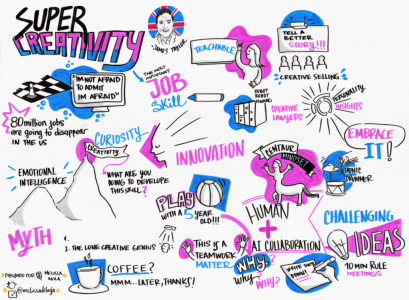 SUPER
CREATIVITY
JAMES TAYLOR
TEACHABLE
TELL A
BETTER
STORY!!!
CREATIVE SELLING
"I'M NOT AFRAID
TO ADMIT
I'M AFRAID"
THE MOST
IMPORTANT
JOB
Skill
CREATIVE
LAWYERS
PERSONALITY
INSIGHTS
80 million jobs
are going to disappear
IN THE US
CURIOSITY
CREATIVITY
INNOVATION
EMBRACE
IT!
CENTAUR
MINDSET
EMOTIONAL
INTELLIGENCE
"WHAT ARE YOU
DOING TO DEVELOPE
THIS SKILL?
PLAY
WITH A 5 YEAR
OLD!!!
DRUMMER
HUMAN
+
AI COLLABORATION
CHALLENGING
IDEAS
10 MIN RULE
MEETINGS
MYTH
1. THE LONE CREATIVE GENIUS
THIS IS A
TEAMWORK
MATTER
WHY?
WHY?
WHY?
WRITE
DOWN!
COFFEE?
MMM... LATER, THANKS!